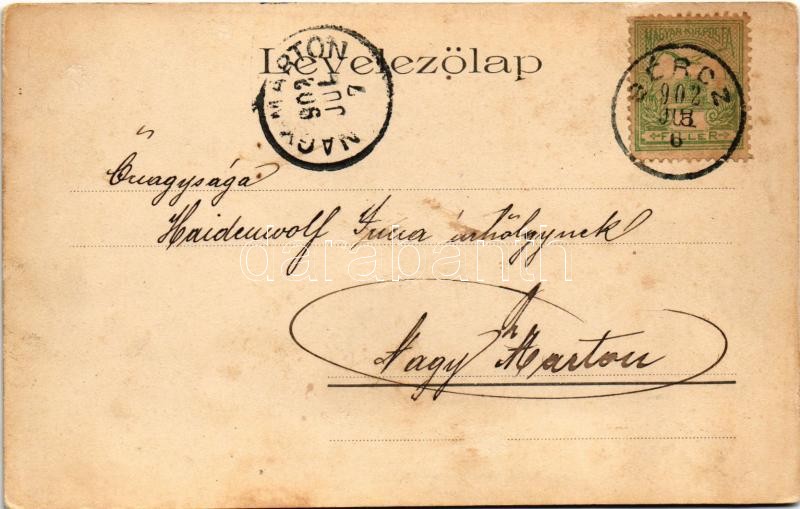 Levelezőlap
NAGY-MARTON
902
JUL
7
MAGYAR KIR. POSTA
SÉRCZ
902
JUL
6
5
FILLER
Őnagysága
Haidenwolf Irma úrhölgynek
Nagy Marton
darabanth